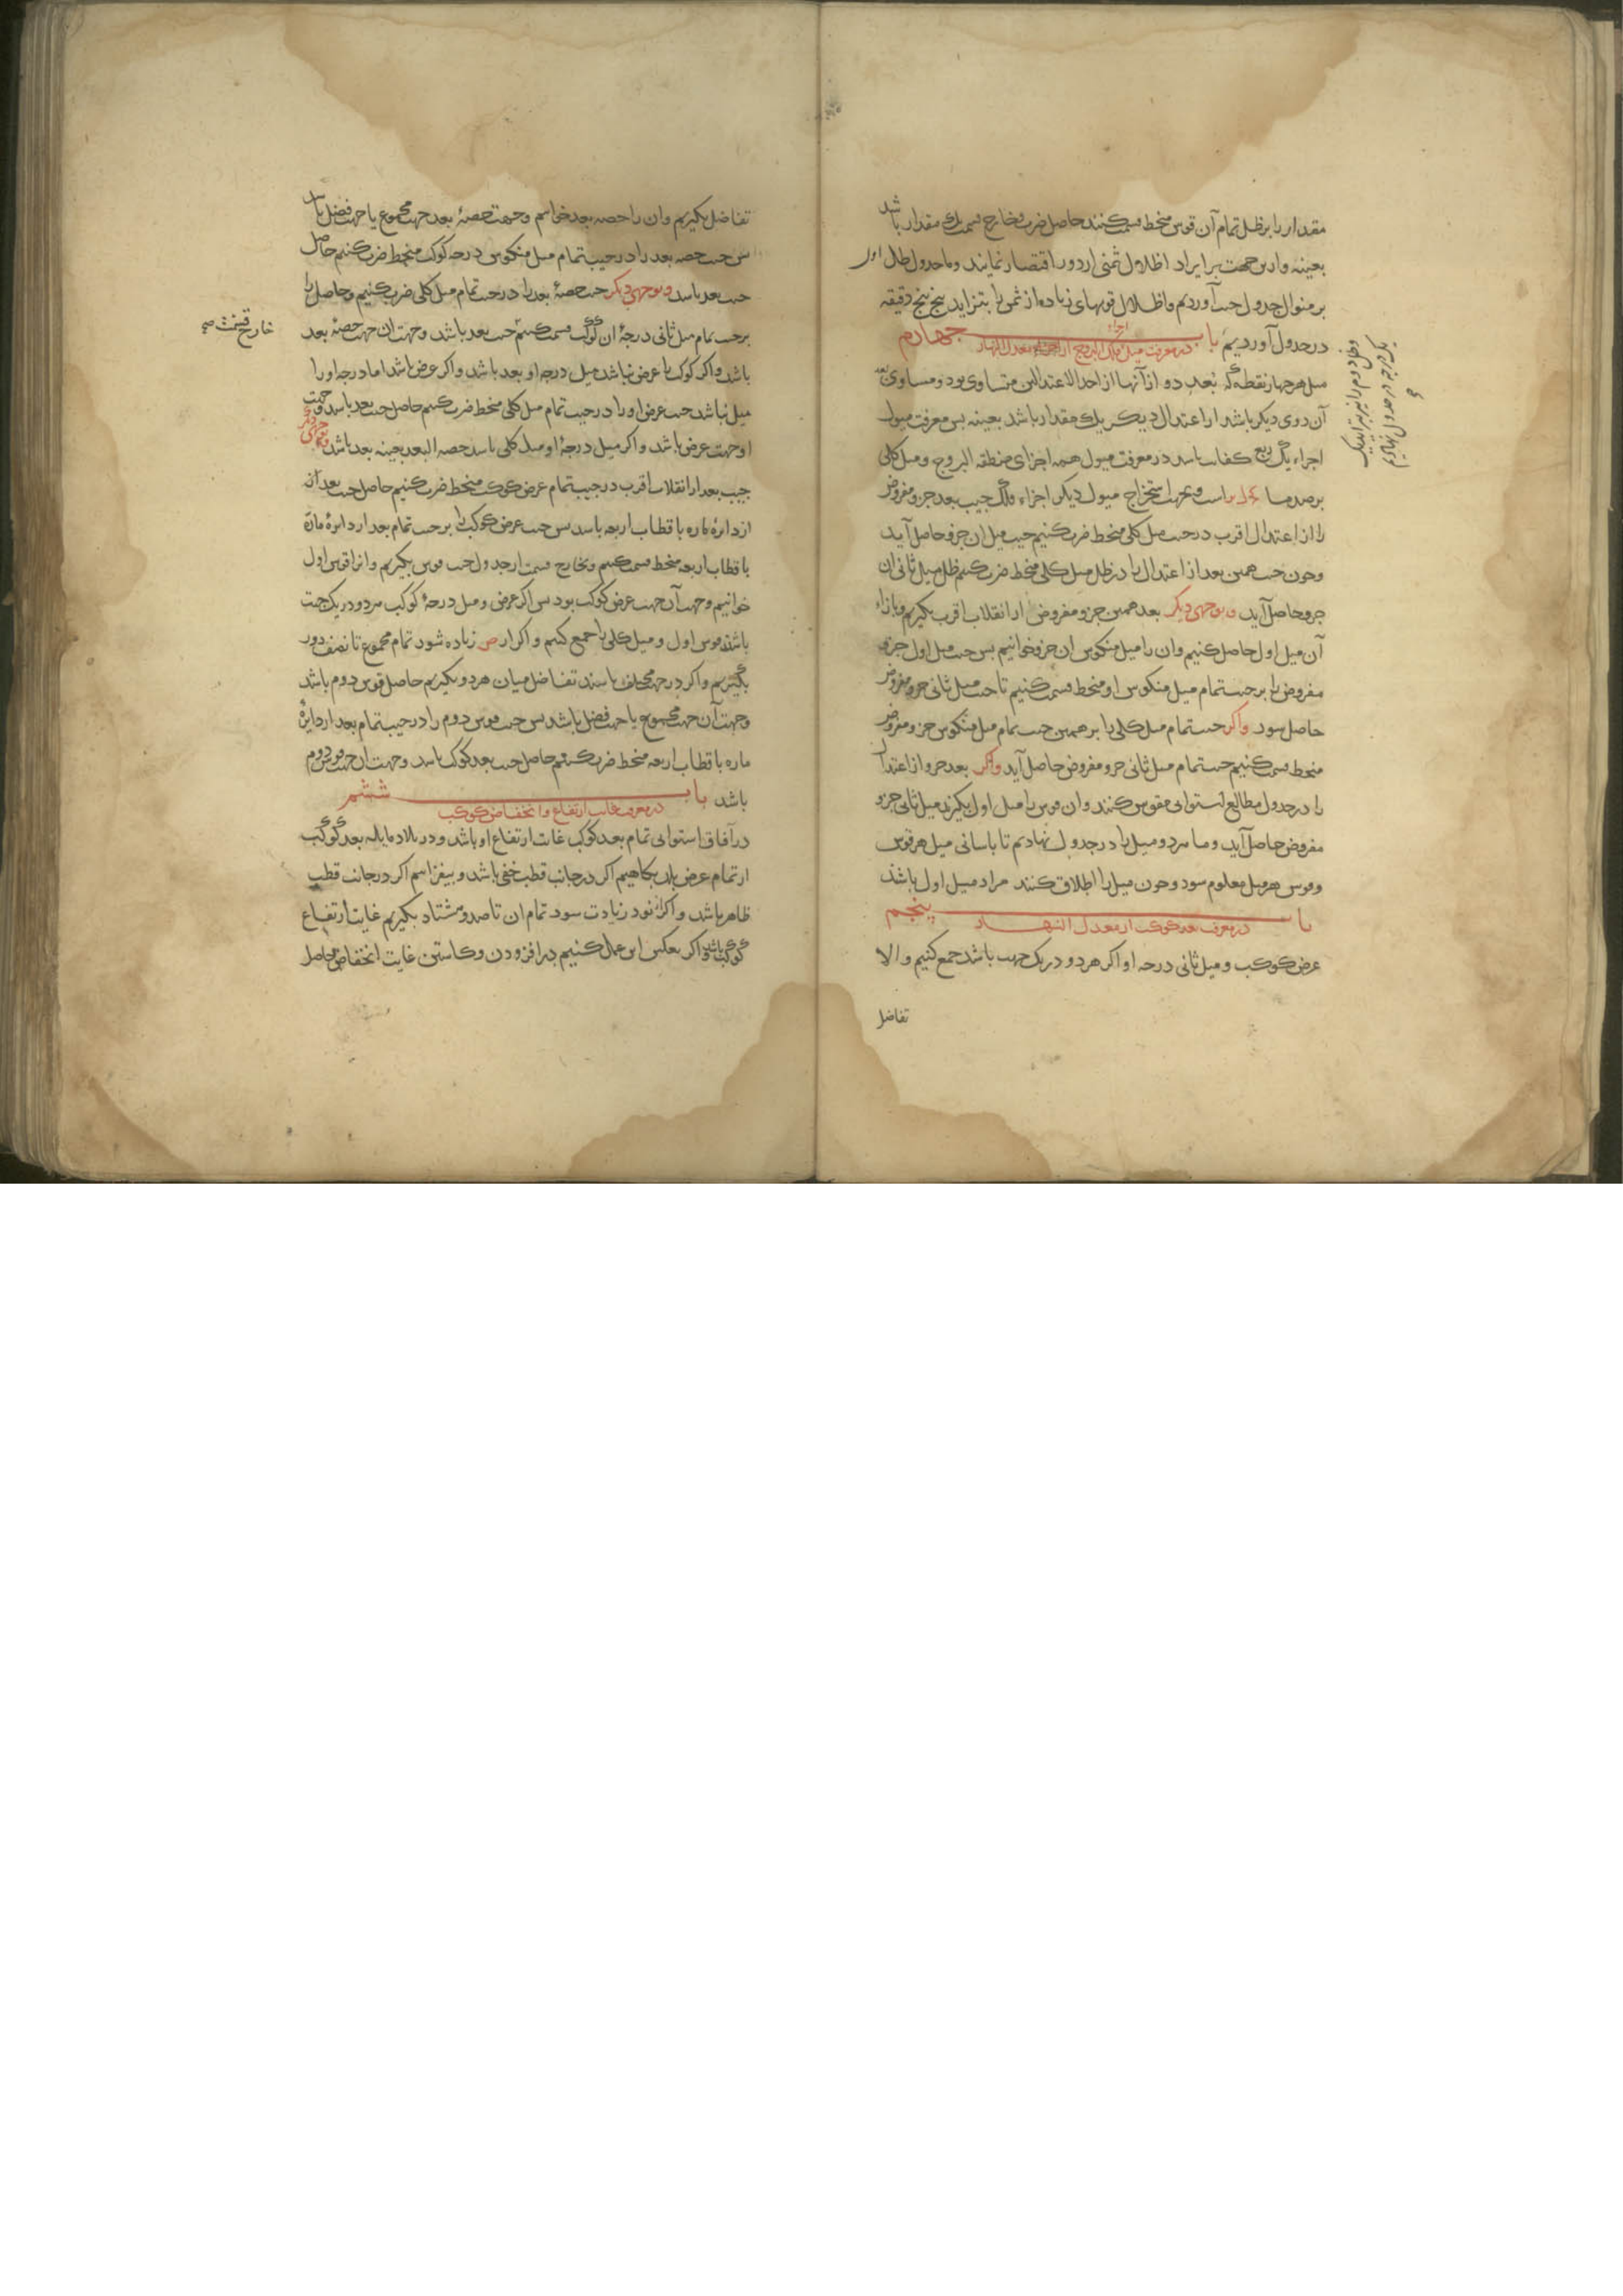 مقدار را بر ظل تمام آن قوس منحط قسمت کنند حاصل ضرب و خارج قسمت یک مقدار باشد
بعینه و ازین جهت بر ایراد اظلال ثمنی از دور اقتصار نمایند و ما جدول ظل اول
بر منوال جدول جیب آوردیم و اظلال قوسهای زیاده از ثمن را بتزاید پنج پنج دقیقه
در جدول آوردیم باب چهارم
در معرفت میل فلک البروج از معدل النهار
میل هر چهار نقطه که بعد دو از آنها از احد الاعتدالین متساوی بود و مساوی بعد
آن دوی دیگر باشد از اعتدال دیگر یک مقدار باشد بعینه پس معرفت میول
اجزاء یک ربع کفایت باشد در معرفت میول همه اجزای منطقه البروج و میل کلی
برصد ما است و بجهت استخراج میول دیگر اجزاء فلک جیب بعد جزو مفروض
را از اعتدال اقرب در جیب میل کلی منحط ضرب کنیم جیب میل آن جزو حاصل آید
و چون جیب همین بعد از اعتدال را در ظل میل کلی منحط ضرب کنیم ظل میل ثانی آن
جزو حاصل آید و بوجهی دیگر بعد همین جزو مفروض از انقلاب اقرب بگیریم و بازاء
آن میل اول حاصل کنیم و آن را میل منکوس آن جزو خوانیم پس جیب میل اول جزو
مفروض را بر جیب تمام میل منکوس او منحط قسمت کنیم تا جیب میل ثانی جزو مفروض
حاصل شود و اگر جیب تمام میل کلی را بر همین جیب تمام میل منکوس جزو مفروض
منحط قسمت کنیم جیب تمام میل ثانی جزو مفروض حاصل آید و اگر بعد جزو از اعتدال
را در جدول مطالع استوایی مقوس کنند و آن قوس را میل اول بگیرند میل ثانی جزو
مفروض حاصل آید و ما هر دو میل را در جدول نهادیم تا بآسانی میل هر قوس
و قوس هر میل معلوم شود و چون میل را اطلاق کنند مراد میل اول باشد
باب پنجم
در معرفت بعد کوکب از معدل النهار
عرض کوکب و میل ثانی درجه او اگر هر دو در یک جهت باشد جمع کنیم و الا
تفاضل
تفاضل بگیریم و آن را حصه بعد خوانیم و جهت حصهٔ بعد جهت مجموع یا جهت فضل باشد
پس جیب حصه بعد را در جیب تمام میل منکوس درجه کوکب منحط ضرب کنیم حاصل
جیب بعد باشد و بوجهی دیگر جیب حصهٔ بعد را در جیب تمام میل کلی ضرب کنیم و حاصل را
بر جیب تمام میل ثانی درجهٔ آن کوکب قسمت کنیم جیب بعد باشد و جهت آن جهت حصهٔ بعد
خارج قسمت صح
باشد و اگر کوکب را عرض نباشد میل درجه او بعد باشد و اگر عرض باشد اما درجه او را
میل نباشد جیب عرض او را در جیب تمام میل کلی منحط ضرب کنیم حاصل جیب بعد باشد و جهت
او جهت عرض باشد و اگر میل درجهٔ او میل کلی باشد حصه البعد بعینه بعد باشد و بوجهی دیگر
جیب بعد از انقلاب اقرب در جیب تمام عرض کوکب منحط ضرب کنیم حاصل جیب بعد آن
از دایرهٔ ماره باقطاب اربعه باشد پس جیب عرض کوکب را بر جیب تمام بعد از دایرهٔ مارّه
باقطاب اربعه منحط قسمت کنیم و بخارج قسمت از جدول جیب قوس بگیریم و آن را قوس اول
خوانیم و جهت آن جهت عرض کوکب بود پس اگر عرض و میل درجهٔ کوکب هر دو در یک جهت
باشد قوس اول و میل کلی را جمع کنیم و اگر از ص زیاده شود تمام مجموع تا نصف دور
بگیریم و اگر در جهت مختلف باشند تفاضل میان هر دو بگیریم حاصل قوس دوم باشد
و جهت آن جهت مجموع یا جهت فضل باشد پس جیب قوس دوم را در جیب تمام بعد از دایرهٔ
ماره باقطاب اربعه منحط ضرب کنیم حاصل جیب بعد کوکب باشد و جهت آن جهت قوس دوم
باشد باب ششم
در معرفت غایت ارتفاع و انخفاض کوکب
در آفاق استوایی تمام بعد کوکب غایت ارتفاع او باشد و در بلاد مایله بعد کوکب
از تمام عرض بلد بکاهیم اگر در جانب قطب خفی باشد و بیفزاییم اگر در جانب قطب
ظاهر باشد و اگر از نود زیادت شود تمام آن تا صد و هشتاد بگیریم غایت ارتفاع
کوکب باشد و اگر بعکس این عمل کنیم در افزودن و کاستن غایت انخفاض حاصل